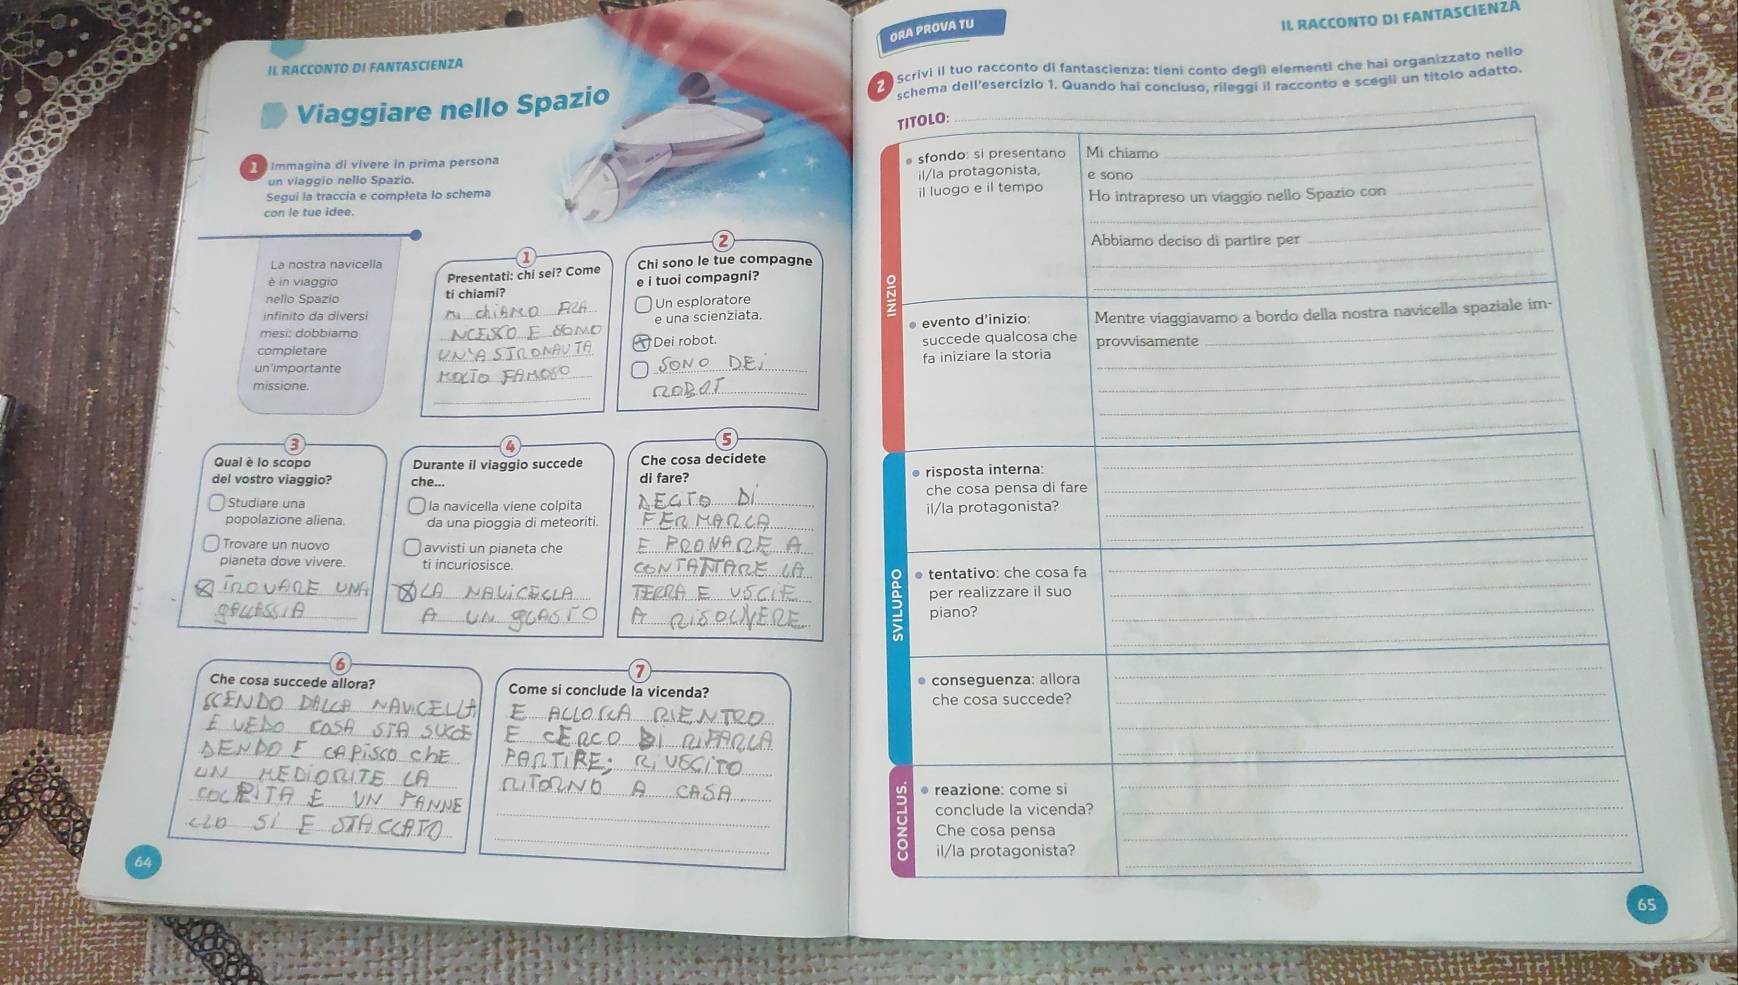 IL RACCONTO DI FANTASCIENZA
Viaggiare nello Spazio
1 Immagina di vivere in prima persona
un viaggio nello Spazio.
Segui la traccia e completa lo schema
con le tue idee.
La nostra navicella
è in viaggio
nello Spazio
infinito da diversi
mesi: dobbiamo
completare
un'importante
missione.
1
Presentati: chi sei? Come
ti chiami?
MI CHIAMO FRA
NCESCO E SOMO
UN'ASTRONAUTA
MOLTO FAMOSO
2
Chi sono le tue compagne
e i tuoi compagni?
Un esploratore
e una scienziata.
Dei robot.
SONO DEI
ROBOT
3
Qual è lo scopo
del vostro viaggio?
Studiare una
popolazione aliena.
Trovare un nuovo
pianeta dove vivere.
TROVARE UNA
GALLASSIA
4
Durante il viaggio succede
che...
la navicella viene colpita
da una pioggia di meteoriti.
avvisti un pianeta che
ti incuriosisce.
LA NAVICECLA
A UN GUASTO
5
Che cosa decidete
di fare?
DI
FERMARLA
E PRONARE A
CONTATTARE LA
TERRA E USCIRE
A RISOLVERE
6
Che cosa succede allora?
SCENDO DALLA NAVICELLA
E VEDO COSA STA SUCCE
DENDO E CAPISCO CHE
UN MEDIORITE LA
COLPITA E UN PANNE
LLO SI E STACCATO
7
Come si conclude la vicenda?
E ALLORA RIENTRO
E CERCO DI RIFARLA
PARTIRE; RIUSCITO
RITORNO A CASA
64
ORA PROVA TU
IL RACCONTO DI FANTASCIENZA
2 Scrivi il tuo racconto di fantascienza: tieni conto degli elementi che hai organizzato nello
schema dell'esercizio 1. Quando hai concluso, rileggi il racconto e scegli un titolo adatto.
TITOLO:
INIZIO
sfondo: si presentano
il/la protagonista,
il luogo e il tempo
Mi chiamo
e sono
Ho intrapreso un viaggio nello Spazio con
Abbiamo deciso di partire per
evento d'inizio:
succede qualcosa che
fa iniziare la storia
Mentre viaggiavamo a bordo della nostra navicella spaziale im-
provvisamente
SVILUPPO
risposta interna:
che cosa pensa di fare
il/la protagonista?
tentativo: che cosa fa
per realizzare il suo
piano?
conseguenza: allora
che cosa succede?
CONCLUS.
reazione: come si
conclude la vicenda?
Che cosa pensa
il/la protagonista?
65